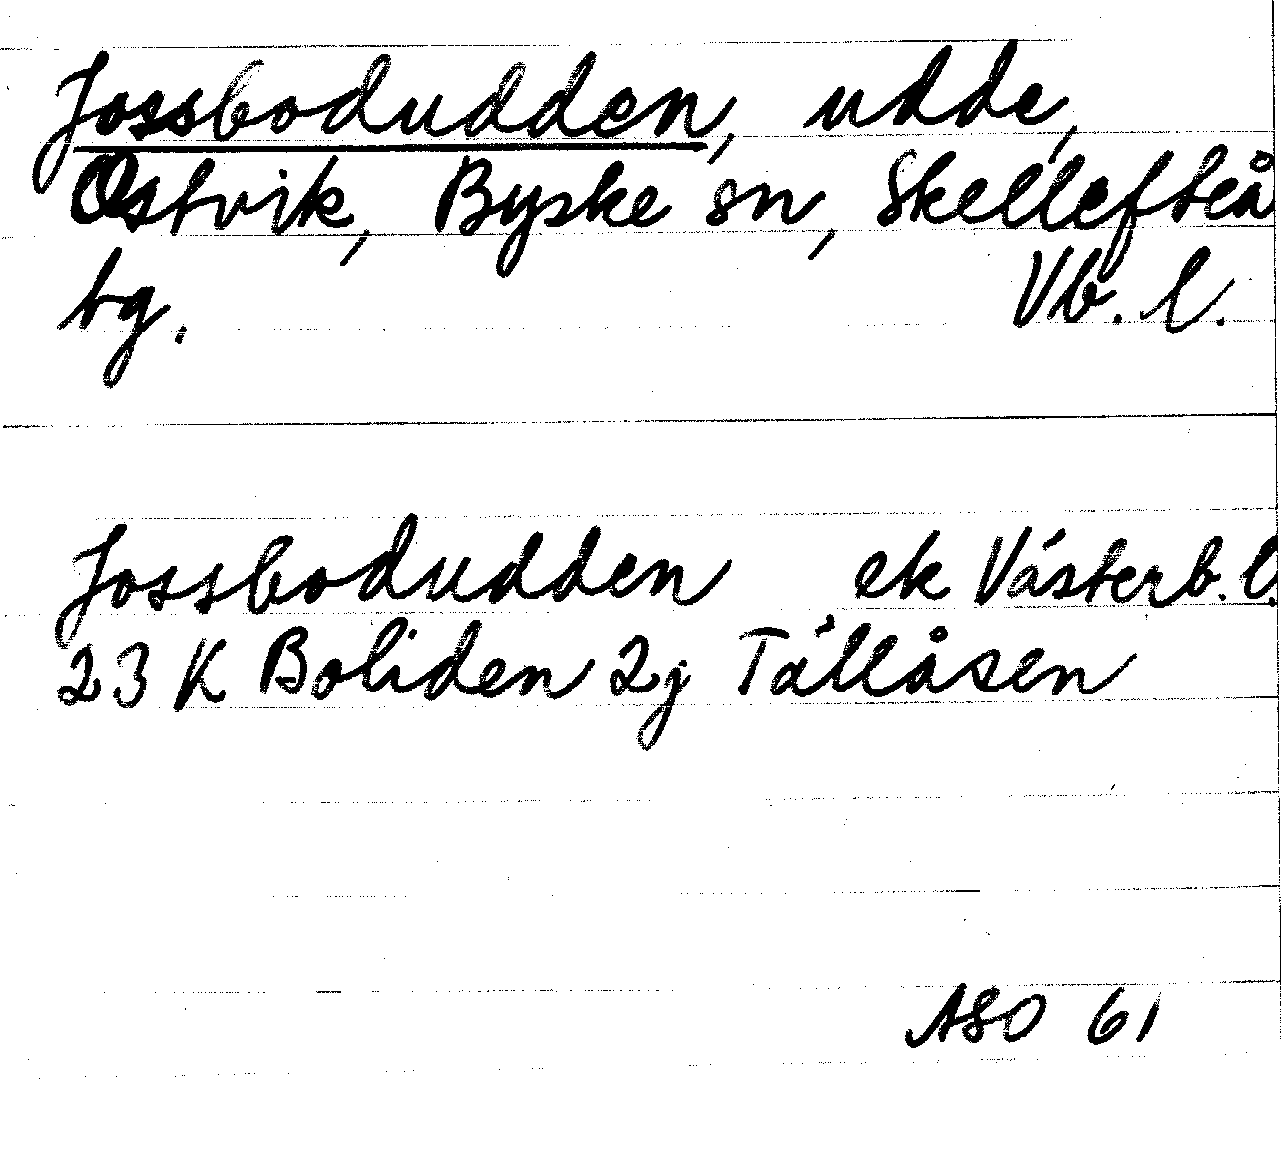 Jossbodudden, udde,
Ostvik, Byske sn, Skellefteå
tg. Vb. l.
Jossbodudden ek Västerb. l.
23 K Boliden 2j Tällåsen
ASO 61